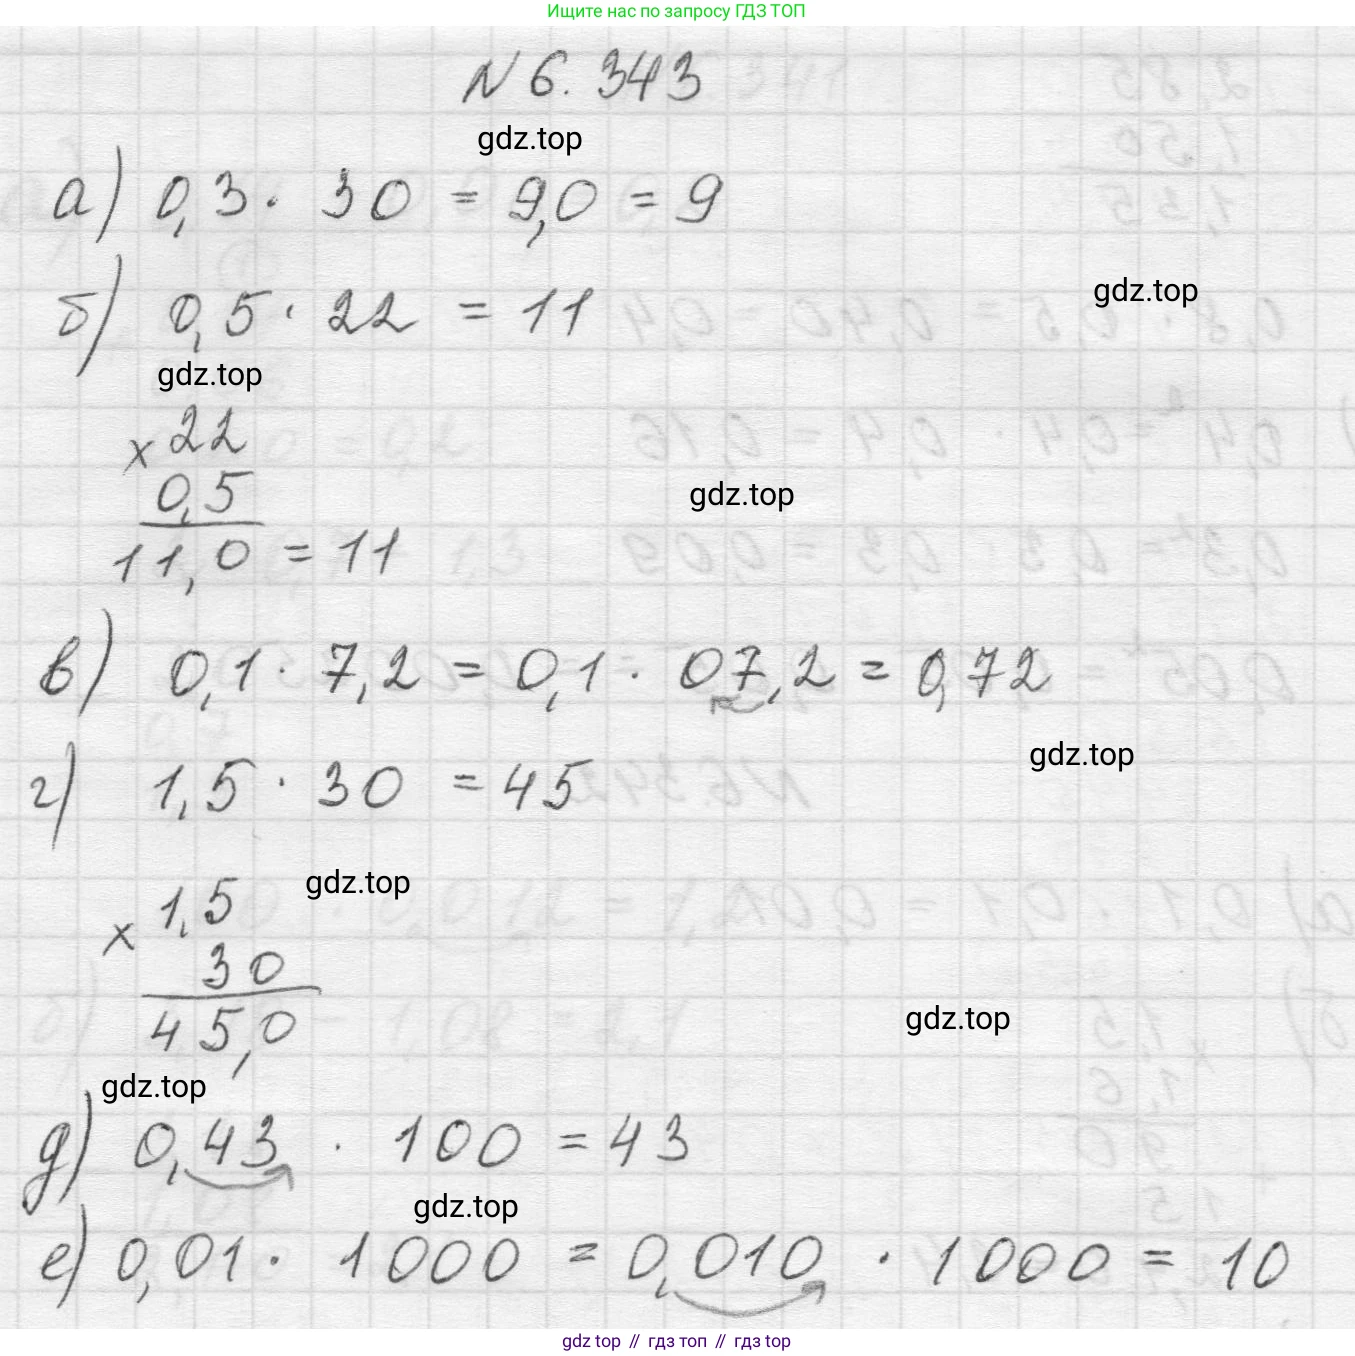 Ищите нас по запросу ГДЗ ТОП
N 6. 343
gdz.top
а) 0,3 · 30 = 9,0 = 9
gdz.top
б) 0,5 · 22 = 11
gdz.top
× 22
0,5
gdz.top
11,0 = 11
в) 0,1 · 7,2 = 0,1 · 07,2 = 0,72
gdz.top
г) 1,5 · 30 = 45
gdz.top
× 1,5
30
gdz.top
45,0
gdz.top
д) 0,43 · 100 = 43
gdz.top
е) 0,01 · 1000 = 0,010 · 1000 = 10
gdz top // гдз топ // gdz top